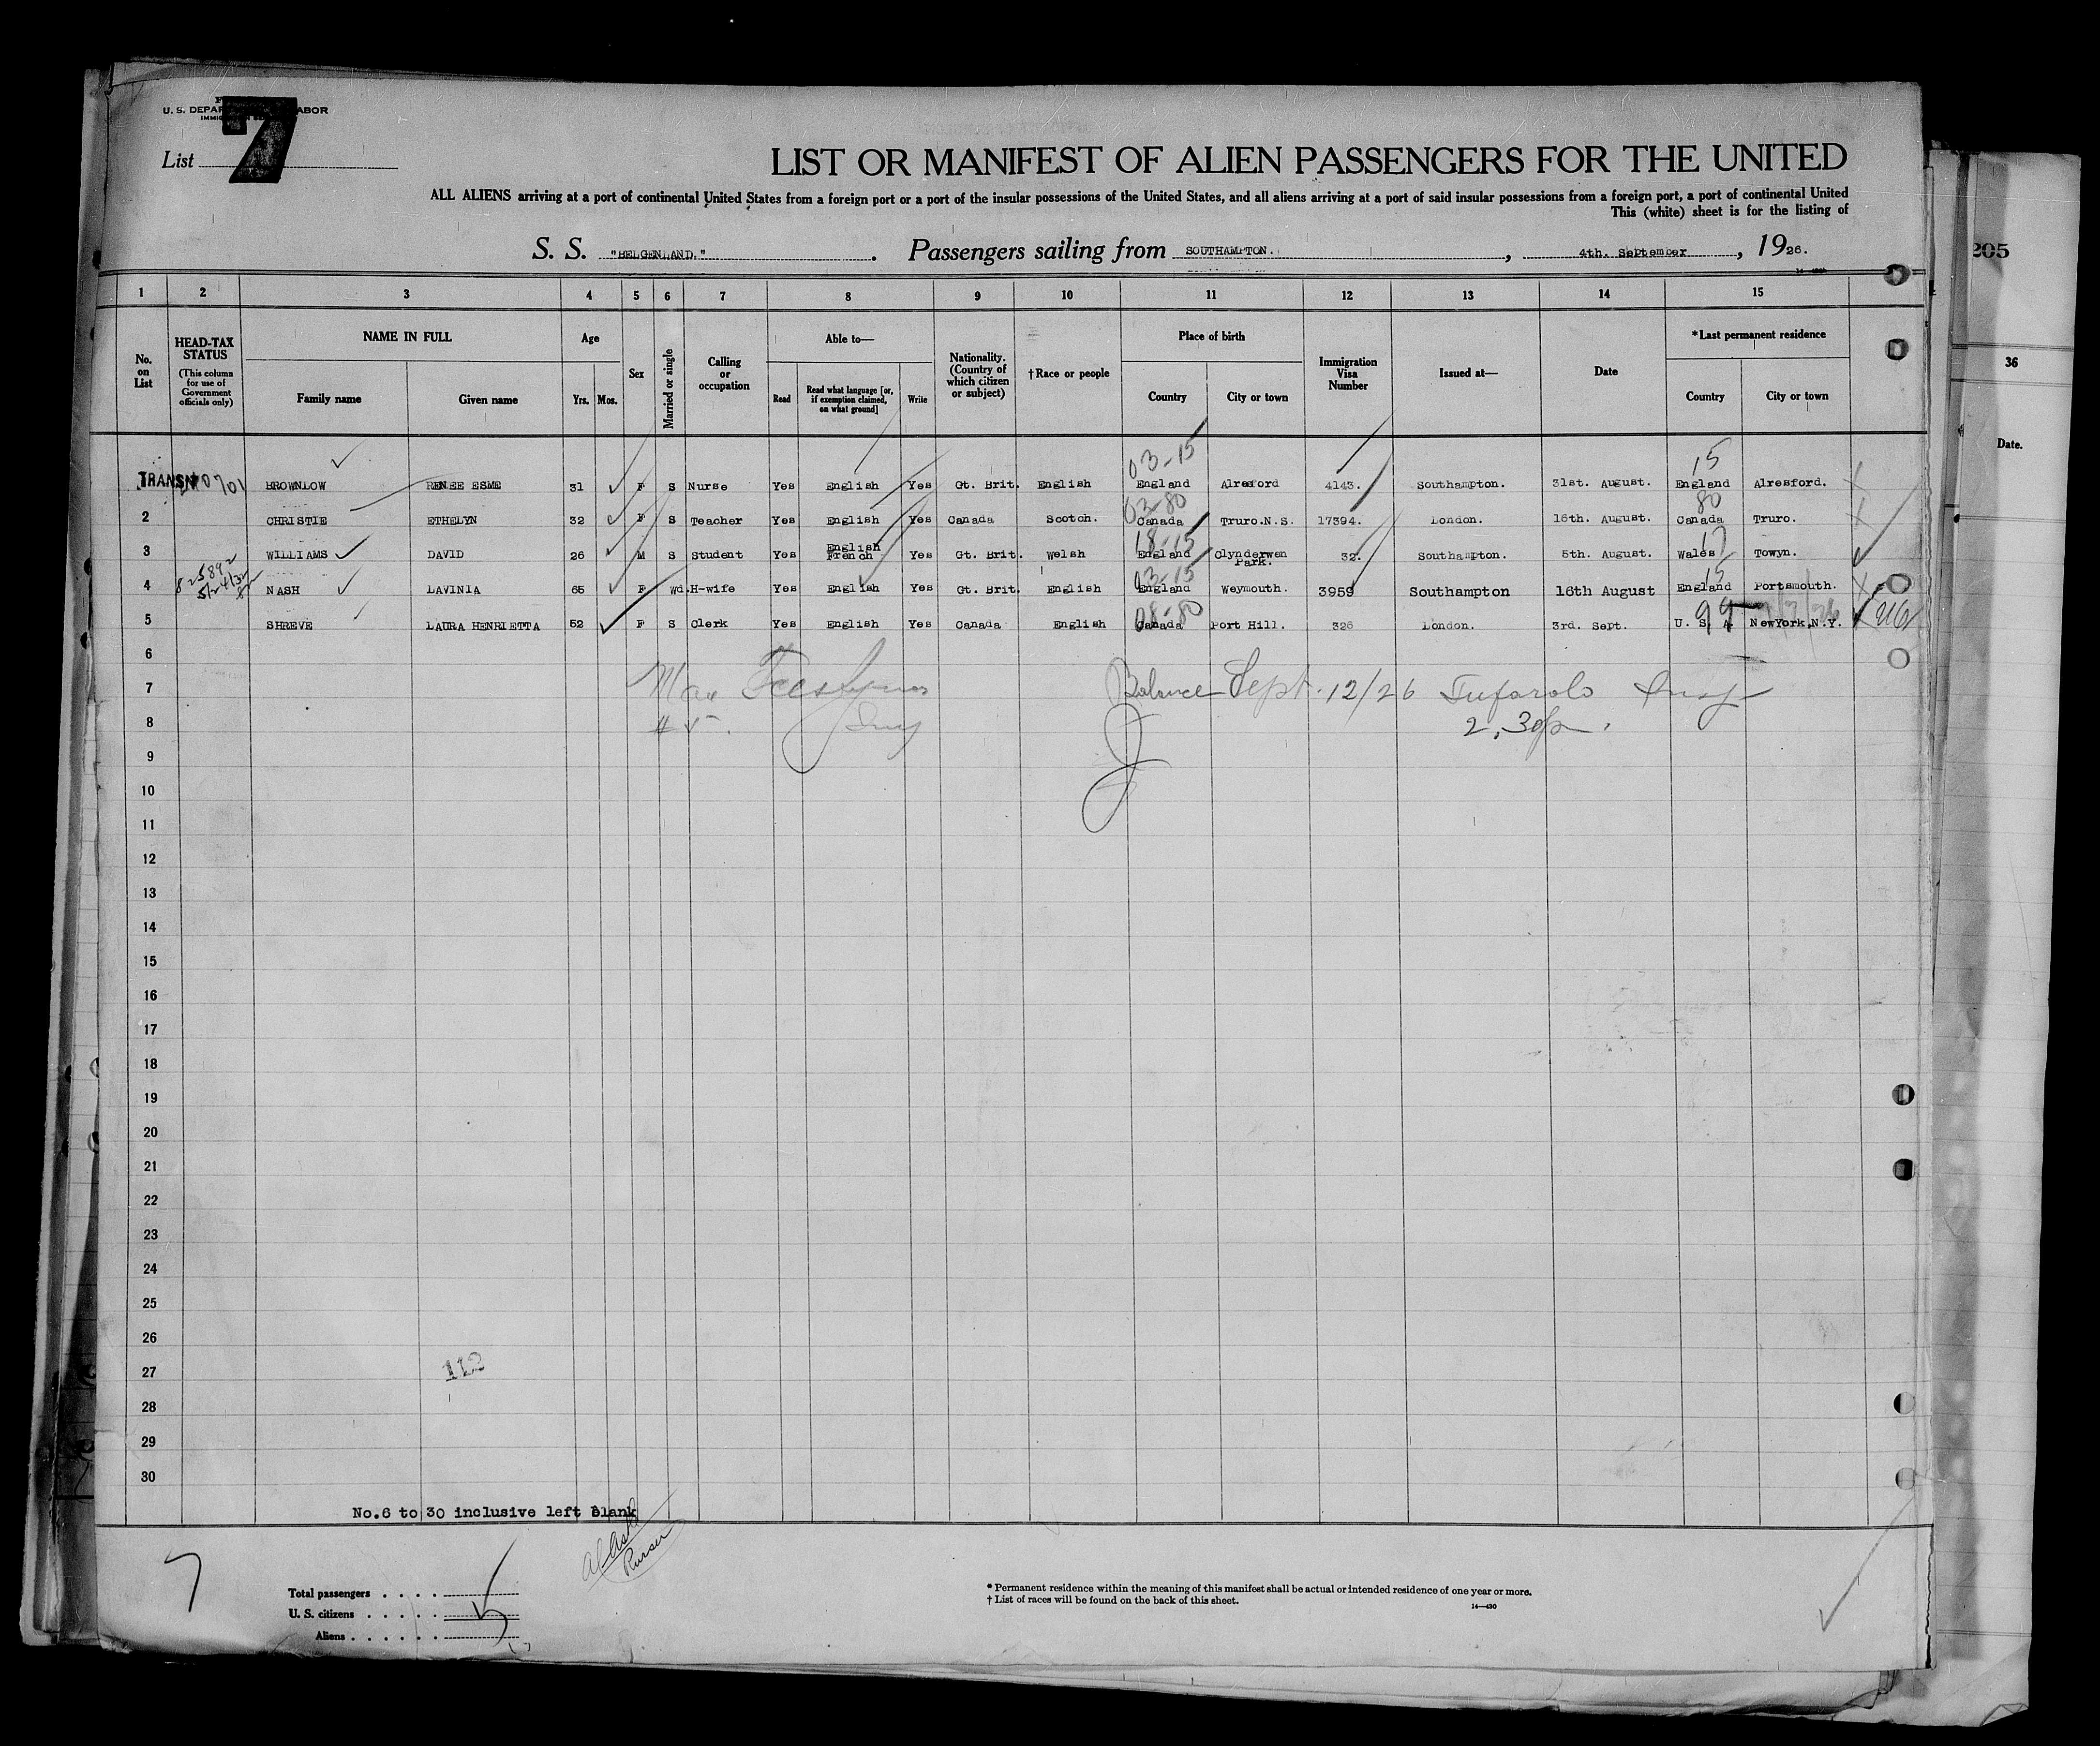 U. S. DEPAR ABOR
List 7
LIST OR MANIFEST OF ALIEN PASSENGERS FOR THE UNITED
ALL ALIENS arriving at a port of continental United States from a foreign port or a port of the insular possessions of the United States, and all aliens arriving at a port of said insular possessions from a foreign port, a port of continental United
This (white) sheet is for the listing of
S. S. "BELGENLAND." Passengers sailing from SOUTHAMPTON. , 4th. September , 1926.
205
1 2 3 4 5 6 7 8 9 10 11 12 13 14 15
No. on List
HEAD-TAX STATUS (This column for use of Government officials only)
NAME IN FULL
Family name
Given name
Age
Yrs. Mos.
Sex
Married or single
Calling or occupation
Able to—
Read
Read what language [or, if exemption claimed, on what ground]
Write
Nationality. (Country of which citizen or subject)
†Race or people
Place of birth
Country
City or town
Immigration Visa Number
Issued at—
Date
*Last permanent residence
Country
City or town
36
Date.
03-15 15
TRANSIT BROWNLOW RENEE ESME 31 F S Nurse Yes English Yes Gt. Brit. English England Alresford 4143. Southampton. 31st. August. England Alresford.
03-80 80
2 CHRISTIE ETHELYN 32 F S Teacher Yes English Yes Canada Scotch. Canada Truro.N.S. 17394. London. 16th. August. Canada Truro.
18-15 17
3 WILLIAMS DAVID 26 M S Student Yes English French Yes Gt. Brit. Welsh England Clynderwen Park. 32. Southampton. 5th. August. Wales Towyn.
03-15 15
4 NASH LAVINIA 65 F Wd. H-wife Yes English Yes Gt. Brit. English England Weymouth. 3959 Southampton 16th August England Portsmouth.
08-80 99
5 SHREVE LAURA HENRIETTA 52 F S Clerk Yes English Yes Canada English Canada Port Hill. 326 London. 3rd. Sept. U. S. A. NewYork,N.Y.
6
7 Balance Sept. 12/26
8 #5.
9
10
11
12
13
14
15
16
17
18
19
20
21
22
23
24
25
26
27 112
28
29
30
No.6 to 30 inclusive left blank
Purser
7
Total passengers
U. S. citizens
Aliens 5
* Permanent residence within the meaning of this manifest shall be actual or intended residence of one year or more.
† List of races will be found on the back of this sheet.
14—430